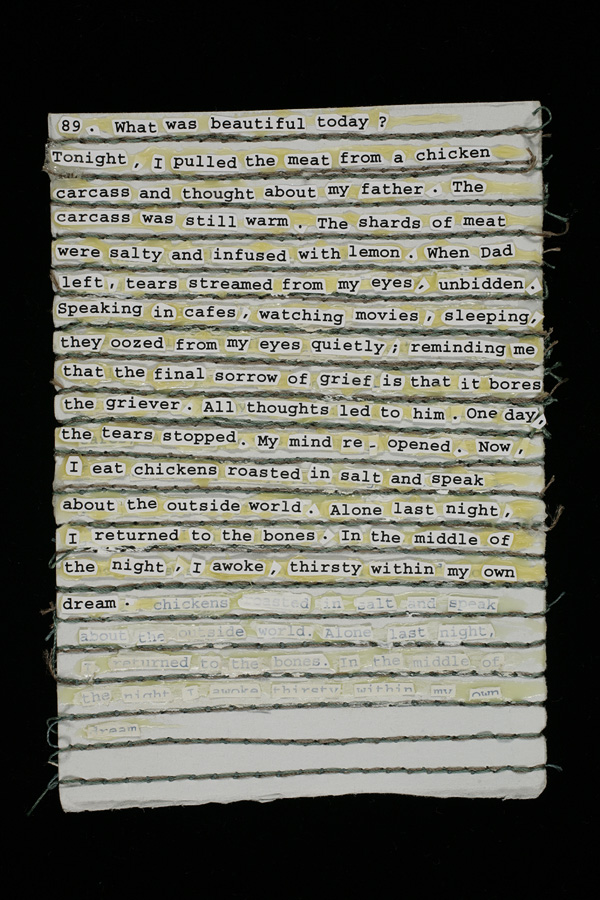 89. What was beautiful today?
Tonight, I pulled the meat from a chicken
carcass and thought about my father. The
carcass was still warm. The shards of meat
were salty and infused with lemon. When Dad
left, tears streamed from my eyes, unbidden.
Speaking in cafes, watching movies, sleeping,
they oozed from my eyes quietly; reminding me
that the final sorrow of grief is that it bores
the griever. All thoughts led to him. One day,
the tears stopped. My mind re-opened. Now,
I eat chickens roasted in salt and speak
about the outside world. Alone last night,
I returned to the bones. In the middle of
the night, I awoke, thirsty within my own
dream. chickens roasted in salt and speak
about the outside world. Alone last night,
I returned to the bones. In the middle of
the night I awoke thirsty within my own
dream